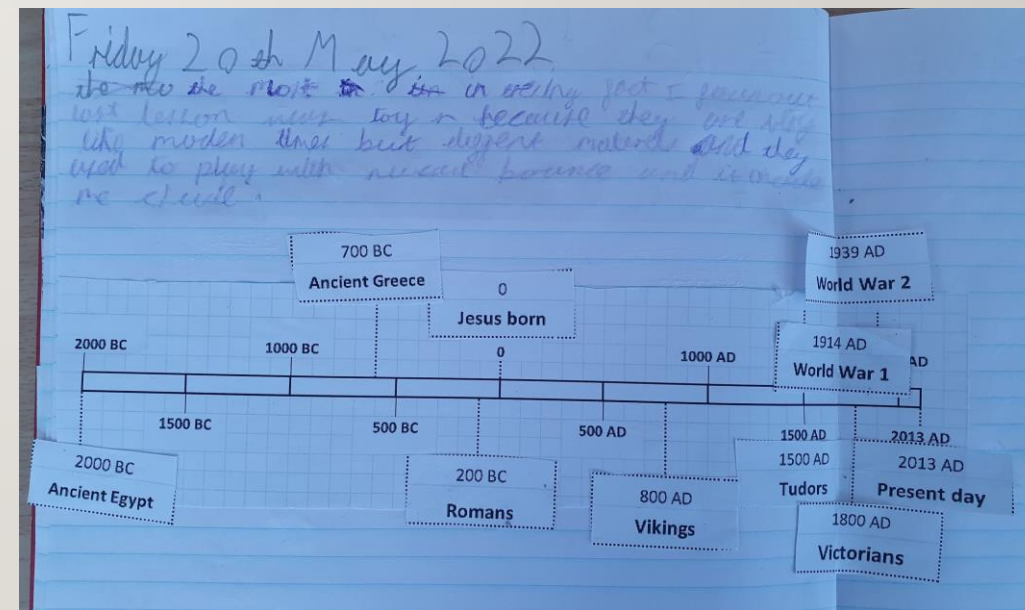 Friday 20th May 2022
the mo the most in in tersing fact I
last lesson was toy n because they are very
like moden times but diffent materls and they
used to play with
me
700 BC
Ancient Greece
0
Jesus born
1939 AD
World War 2
1914 AD
World War 1
2000 BC
1000 BC
0
1000 AD
AD
1500 BC
500 BC
500 AD
1500 AD
2013 AD
2000 BC
Ancient Egypt
200 BC
Romans
800 AD
Vikings
1500 AD
Tudors
2013 AD
Present day
1800 AD
Victorians